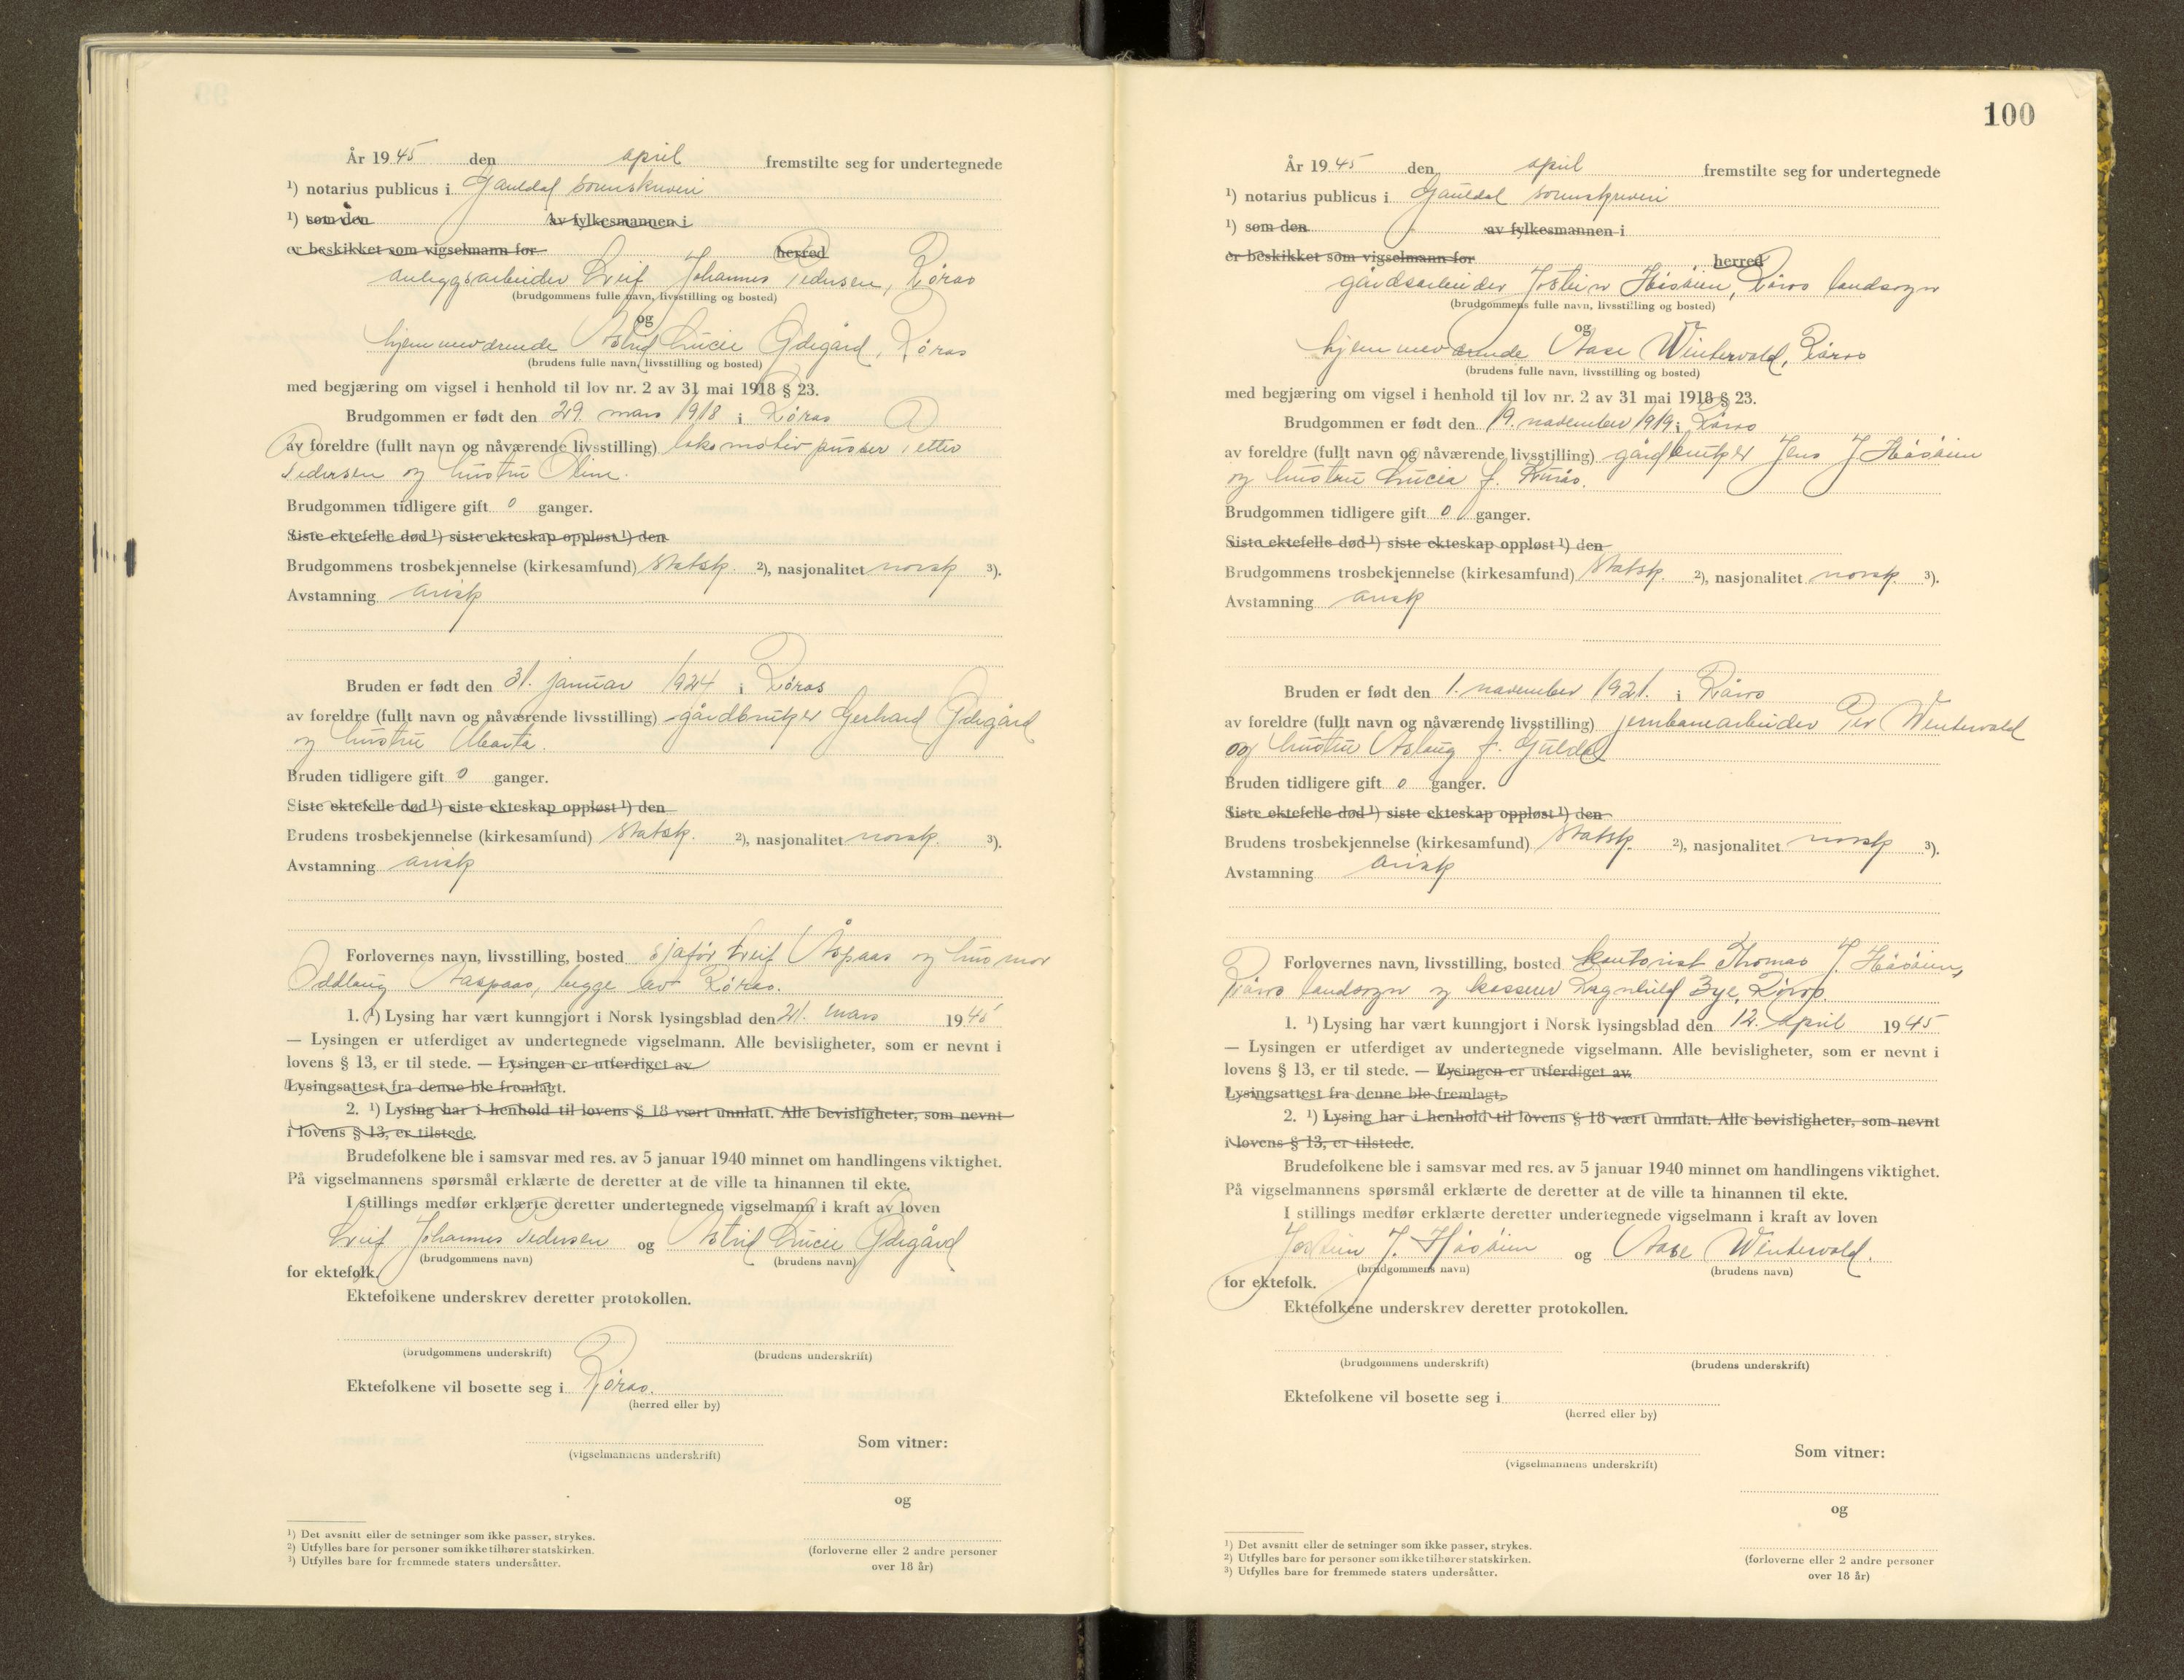 År 19 45 den april fremstilte seg for undertegnede
¹) notarius publicus i Gauldal sorenskriveri
¹) som den Av fylkesmannen i
er beskikket som vigselmann for herred
anleggsarbeider Leif Johannes Pedersen, Röros
(brudgommens fulle navn, livsstilling og bosted)
og
hjemmeværende Astrid Lucie Ødegård, Röros
(brudens fulle navn, livsstilling og bosted)
med begjæring om vigsel i henhold til lov nr. 2 av 31 mai 1918 § 23.
Brudgommen er født den 29. mars 1918 i Röros
av foreldre (fullt navn og nåværende livsstilling) lokomotivpusser Petter
Pedersen og hustru Oline.
Brudgommen tidligere gift 0 ganger.
Siste ektefelle død ¹) siste ekteskap oppløst ¹) den
Brudgommens trosbekjennelse (kirkesamfund) Statsk. ²), nasjonalitet norsk ³).
Avstamning arisk
Bruden er født den 31. januar 1924 i Röros
av foreldre (fullt navn og nåværende livsstilling) gårdbruker Gerhard Ødegård
og hustru Marta.
Bruden tidligere gift 0 ganger.
Siste ektefelle død ¹) siste ekteskap oppløst ¹) den
Brudens trosbekjennelse (kirkesamfund) Statsk. ²), nasjonalitet norsk. ³).
Avstamning arisk
Forlovernes navn, livsstilling, bosted sjafør Leif Åspaas og husmor
Oddlaug Aaspaas, begge av Röros.
1. ¹) Lysing har vært kunngjort i Norsk lysingsblad den 21. mars 19 45
— Lysingen er utferdiget av undertegnede vigselmann. Alle bevisligheter, som er nevnt i
lovens § 13, er til stede. — Lysingen er utferdiget av
Lysingsattest fra denne ble fremlagt.
2. ¹) Lysing har i henhold til lovens § 18 vært unnlatt. Alle bevisligheter, som nevnt
i lovens § 13, er tilstede.
Brudefolkene ble i samsvar med res. av 5 januar 1940 minnet om handlingens viktighet.
På vigselmannens spørsmål erklærte de deretter at de ville ta hinannen til ekte.
I stillings medfør erklærte deretter undertegnede vigselmann i kraft av loven
Leif Johannes Pedersen og Astrid Lucie Ødegård
(brudgommens navn) (brudens navn)
for ektefolk.
Ektefolkene underskrev deretter protokollen.
(brudgommens underskrift) (brudens underskrift)
Ektefolkene vil bosette seg i Röros.
(herred eller by)
Som vitner:
(vigselmannens underskrift)
og
¹) Det avsnitt eller de setninger som ikke passer, strykes.
²) Utfylles bare for personer som ikke tilhører statskirken.
³) Utfylles bare for fremmede staters undersåtter.
(forloverne eller 2 andre personer
over 18 år)
100
År 19 45 den april fremstilte seg for undertegnede
¹) notarius publicus i Gauldal sorenskriveri
¹) som den av fylkesmannen i
er beskikket som vigselmann for herred
gårdsarbeider Jostein Håsåien, Röros landsogn
(brudgommens fulle navn, livsstilling og bosted)
og
hjemmeværende Aase Wintervold, Röros
(brudens fulle navn, livsstilling og bosted)
med begjæring om vigsel i henhold til lov nr. 2 av 31 mai 1918 § 23.
Brudgommen er født den 19. november 1919 i Röros
av foreldre (fullt navn og nåværende livsstilling) gårdbruker Jens J Håsåien
og hustru Lucia f.
Brudgommen tidligere gift 0 ganger.
Siste ektefelle død ¹) siste ekteskap oppløst ¹) den
Brudgommens trosbekjennelse (kirkesamfund) Statsk. ²), nasjonalitet norsk ³).
Avstamning arisk
Bruden er født den 1. november 1921. i Röros
av foreldre (fullt navn og nåværende livsstilling) jernbanearbeider Per Wintervold
og hustru Aslaug f. Guldal
Bruden tidligere gift 0 ganger.
Siste ektefelle død ¹) siste ekteskap oppløst ¹) den
Brudens trosbekjennelse (kirkesamfund) Statsk. ²), nasjonalitet norsk ³).
Avstamning arisk
Forlovernes navn, livsstilling, bosted kontorist Thomas J. Håsåien,
Röros landsogn og kasserer Ragnhild Bye, Röros.
1. ¹) Lysing har vært kunngjort i Norsk lysingsblad den 12. april 19 45
— Lysingen er utferdiget av undertegnede vigselmann. Alle bevisligheter, som er nevnt i
lovens § 13, er til stede. — Lysingen er utferdiget av
Lysingsattest fra denne ble fremlagt,
2. ¹) Lysing har i henhold til lovens § 18 vært unnlatt. Alle bevisligheter, som nevnt
i lovens § 13, er tilstede.
Brudefolkene ble i samsvar med res. av 5 januar 1940 minnet om handlingens viktighet.
På vigselmannens spørsmål erklærte de deretter at de ville ta hinannen til ekte.
I stillings medfør erklærte deretter undertegnede vigselmann i kraft av loven
Jostein J. Håsåien og Aase Wintervold.
(brudgommens navn) (brudens navn)
for ektefolk.
Ektefolkene underskrev deretter protokollen.
(brudgommens underskrift) (brudens underskrift)
Ektefolkene vil bosette seg i
(herred eller by)
Som vitner:
(vigselmannens underskrift)
og
¹) Det avsnitt eller de setninger som ikke passer, strykes.
²) Utfylles bare for personer som ikke tilhører statskirken.
³) Utfylles bare for fremmede staters undersåtter.
(forloverne eller 2 andre personer
over 18 år)